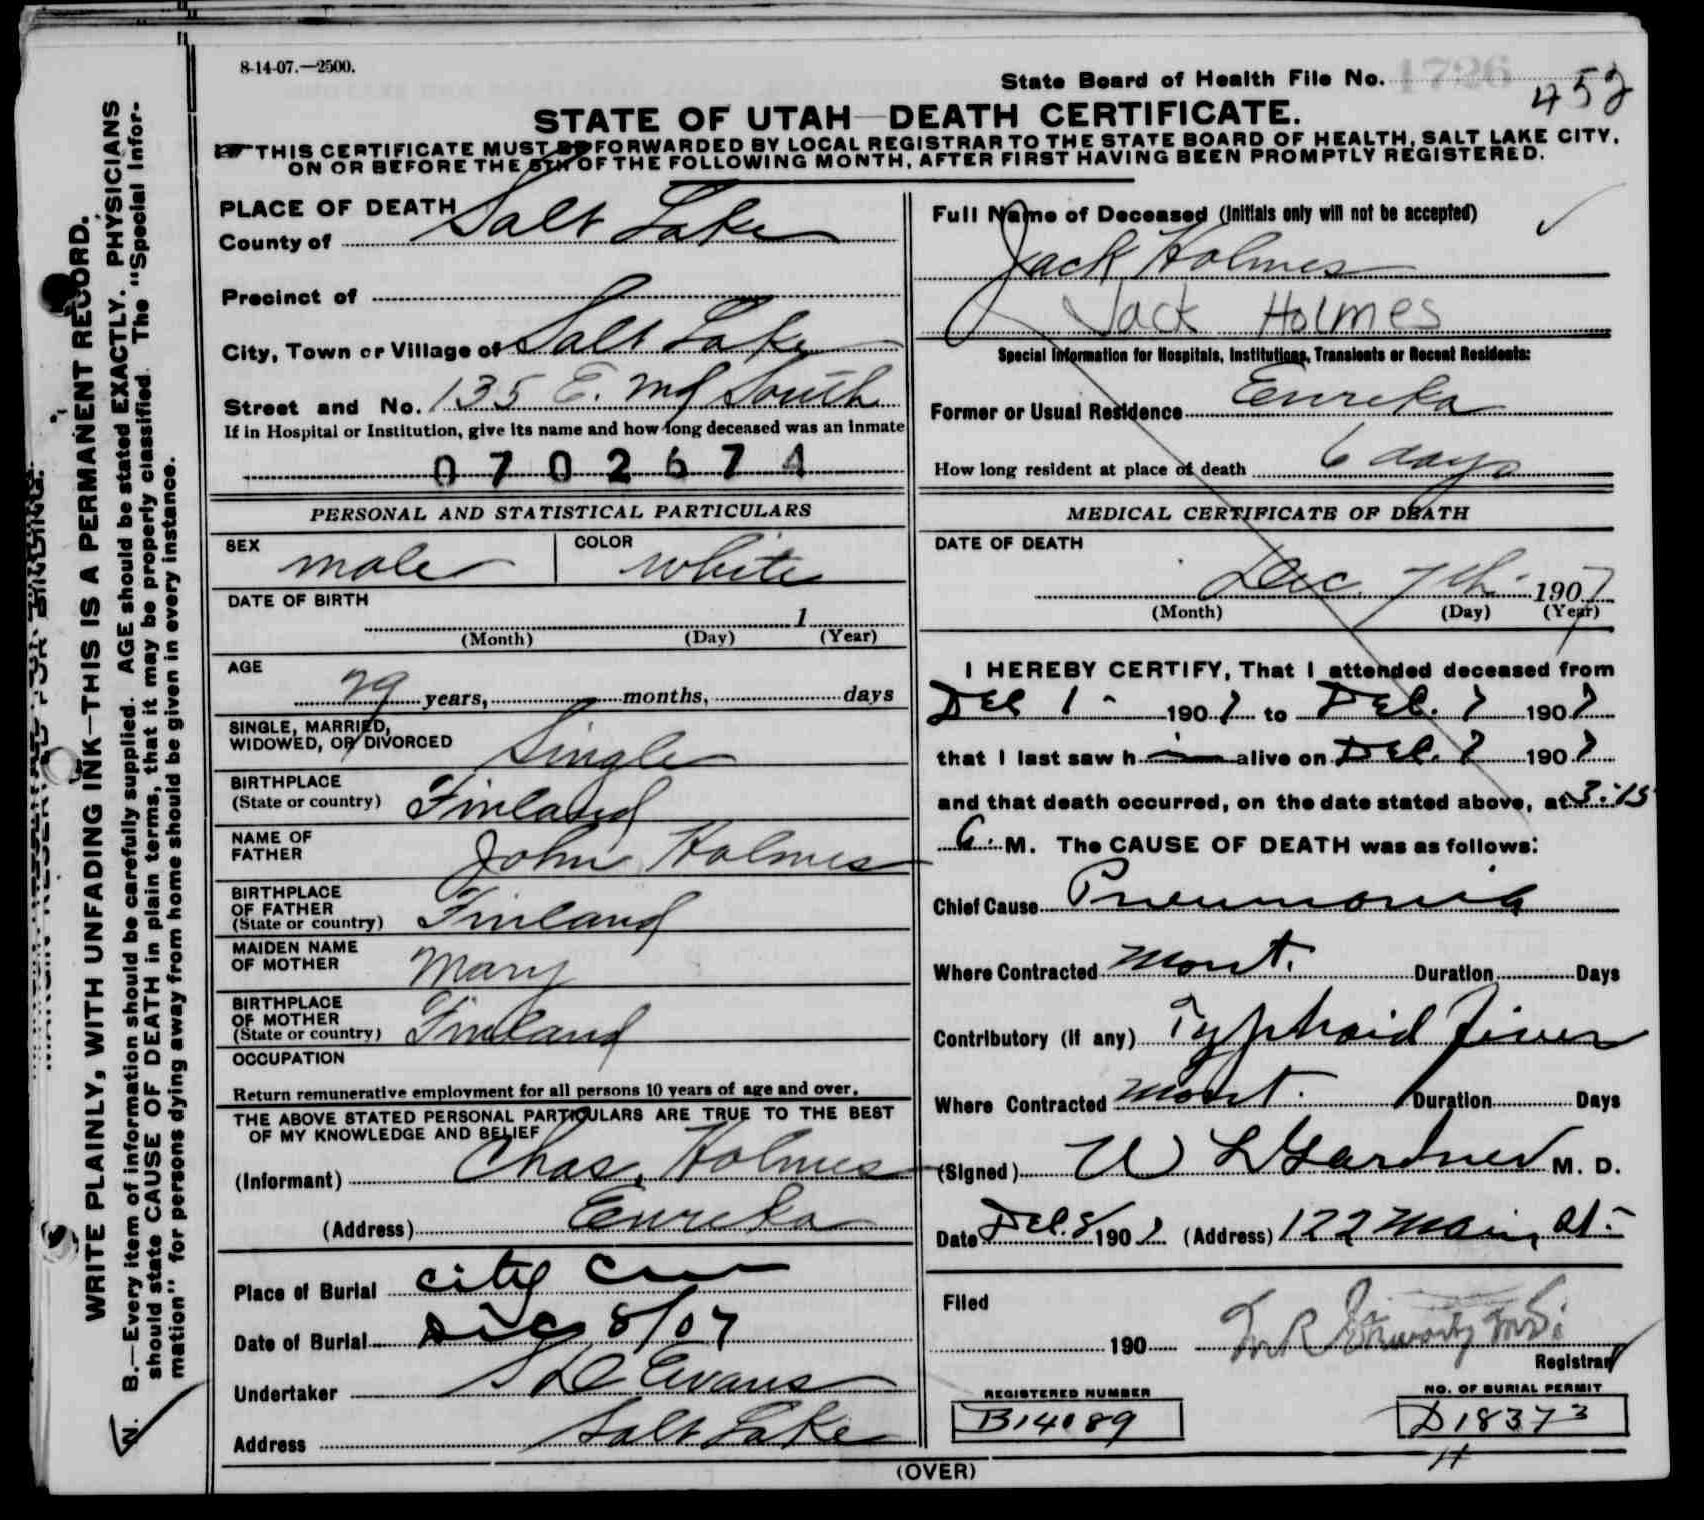 8-14-07.—2500.
State Board of Health File No. 1726
452
STATE OF UTAH—DEATH CERTIFICATE.
THIS CERTIFICATE MUST BE FORWARDED BY LOCAL REGISTRAR TO THE STATE BOARD OF HEALTH, SALT LAKE CITY,
ON OR BEFORE THE 5TH OF THE FOLLOWING MONTH, AFTER FIRST HAVING BEEN PROMPTLY REGISTERED.
PLACE OF DEATH
County of Salt Lake
Precinct of
City, Town or Village of Salt Lake
Street and No. 135 E. South
If in Hospital or Institution, give its name and how long deceased was an inmate
0702674
PERSONAL AND STATISTICAL PARTICULARS
SEX male COLOR white
DATE OF BIRTH
1
(Month) (Day) (Year)
AGE
29 years, months, days
SINGLE, MARRIED,
WIDOWED, OR DIVORCED Single
BIRTHPLACE
(State or country) Finland
NAME OF
FATHER John Holmes
BIRTHPLACE
OF FATHER
(State or country) Finland
MAIDEN NAME
OF MOTHER Mary
BIRTHPLACE
OF MOTHER
(State or country) Finland
OCCUPATION
Return remunerative employment for all persons 10 years of age and over.
THE ABOVE STATED PERSONAL PARTICULARS ARE TRUE TO THE BEST
OF MY KNOWLEDGE AND BELIEF
(Informant) Chas. Holmes
(Address) Eureka
Place of Burial City Cem
Date of Burial Dec 8/07
Undertaker Evans
Address Salt Lake
Full Name of Deceased (Initials only will not be accepted)
Jack Holmes
Jack Holmes
Special Information for Hospitals, Institutions, Transients or Recent Residents:
Former or Usual Residence Eureka
How long resident at place of death 6 days
MEDICAL CERTIFICATE OF DEATH
DATE OF DEATH
Dec. 7th 1907
(Month) (Day) (Year)
I HEREBY CERTIFY, That I attended deceased from
Dec 1- 1907 to Dec. 7 1907
that I last saw h im alive on Dec. 7 1907
and that death occurred, on the date stated above, at 3:15
a. M. The CAUSE OF DEATH was as follows:
Chief Cause Pneumonia
Where Contracted Mont. Duration Days
Contributory (if any) Typhoid Fever
Where Contracted Mont. Duration Days
(Signed) W L Gardner M. D.
Date Dec. 8 1907 (Address) 122 Main St.
Filed
190
Registrar
REGISTERED NUMBER
B14089
NO. OF BURIAL PERMIT
D18373
H
(OVER)
WRITE PLAINLY, WITH UNFADING INK—THIS IS A PERMANENT RECORD.
N. B.—Every item of information should be carefully supplied. AGE should be stated EXACTLY. PHYSICIANS
should state CAUSE OF DEATH in plain terms, that it may be properly classified. The "Special Infor-
mation" for persons dying away from home should be given in every instance.